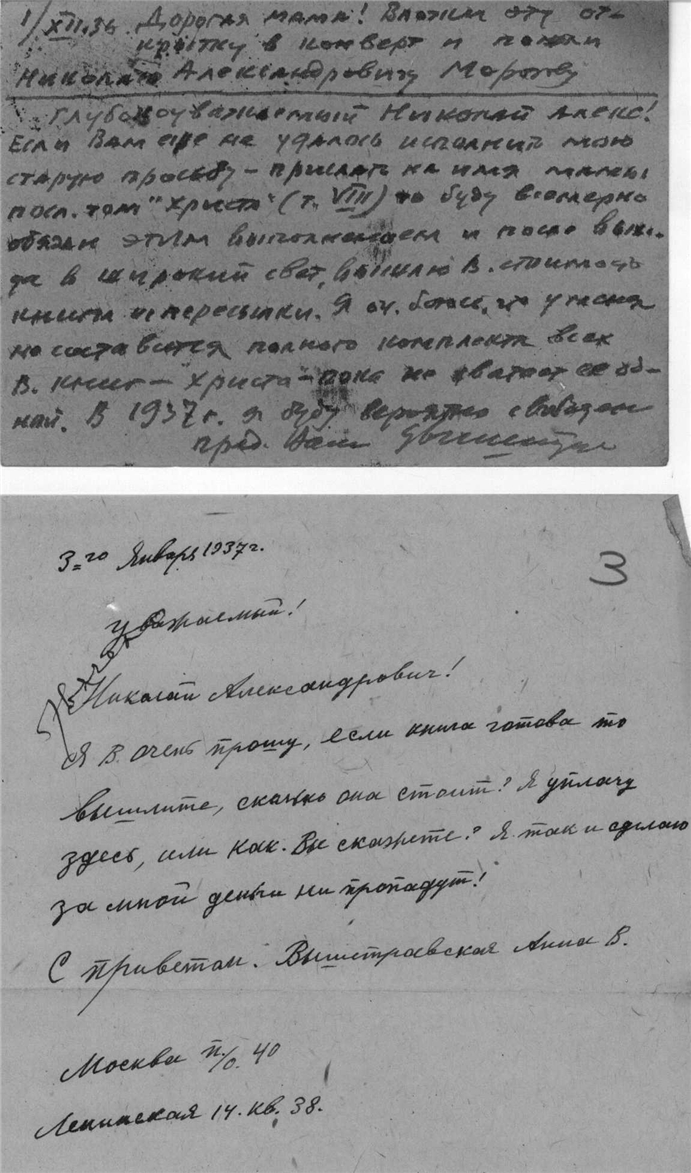 1/XII.36. Дорогая мама! Вложи эту от-
крытку в конверт и пошли
Николаю Александровичу Морозову
Глубокоуважаемый Николай Алекс!
Если Вам еще не удалось исполнить мою
старую просьбу – прислать на имя мамы
посл. том "Христа" (т. VIII) то буду всемерно
обязан этим выполнением и после выхо-
да в широкий свет, вышлю В. стоимость
книги и пересылки. Я оч. боюсь, что у меня
не составится полного комплекта всех
В. книг – Христа – пока не хватает ее од-
ной. В 1937 г. я буду вероятно свободен
пред. Вам
3=го Января 1937 г.
3
Уважаемый!
Николай Александрович!
Я В. очень прошу, если книга готова то
вышлите, сколько она стоит? Я уплачу
здесь, или как. Вы скажете? Я так и сделаю
за мной деньги ни пропадут!
С приветом. Анна В.
Москва п/о. 40
Ленинская 14. кв. 38.